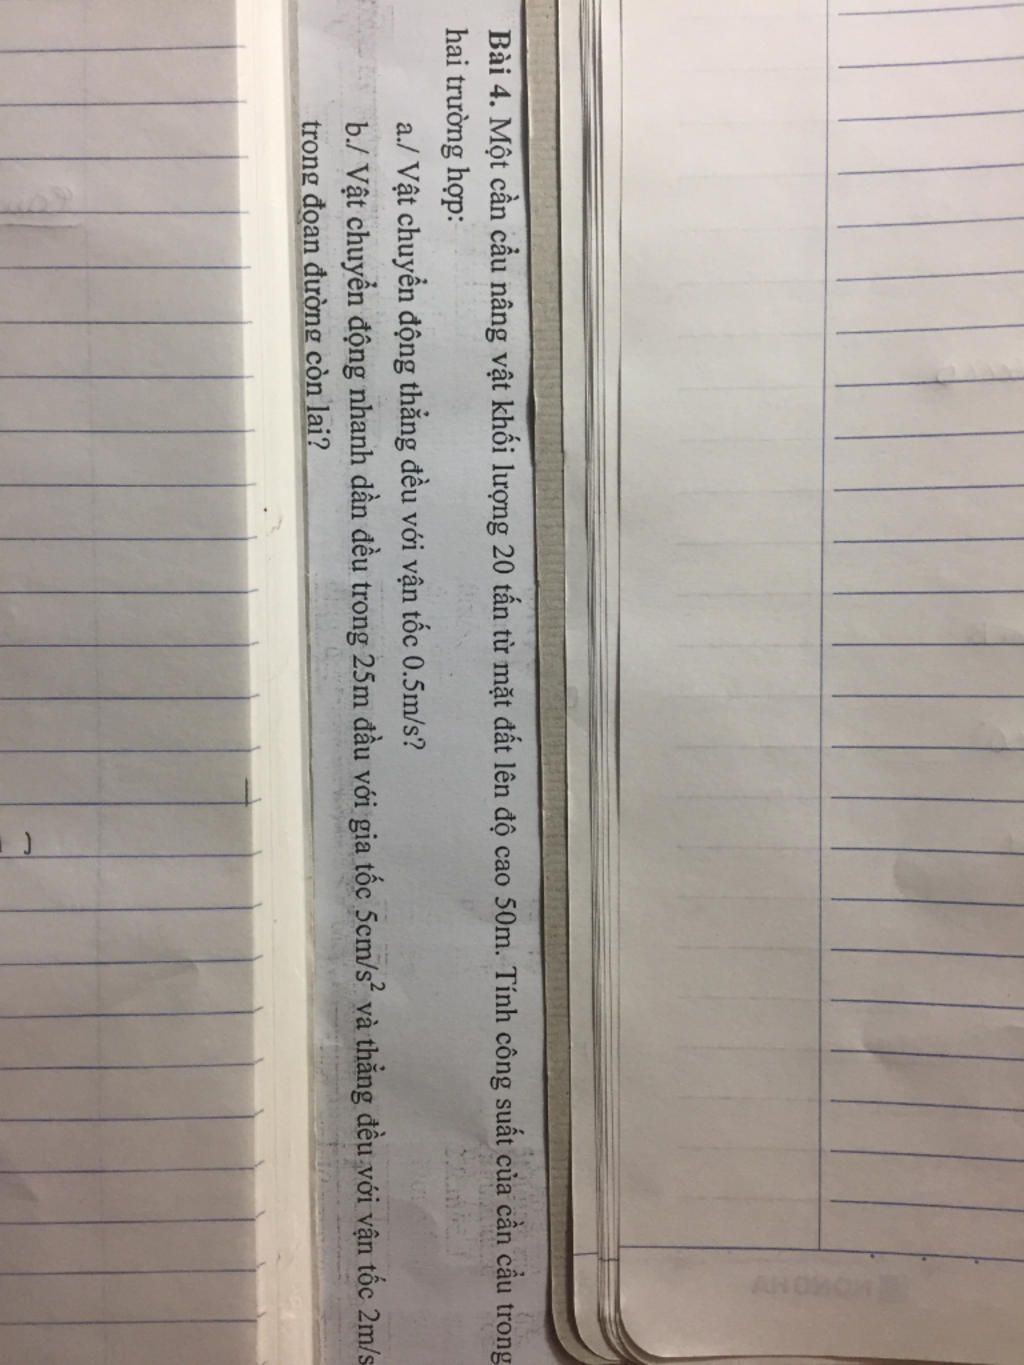 Bài 4. Một cần cẩu nâng vật khối lượng 20 tấn từ mặt đất lên độ cao 50m. Tính công suất của cần cẩu trong
hai trường hợp:
a./ Vật chuyển động thẳng đều với vận tốc 0.5m/s?
b./ Vật chuyển động nhanh dần đều trong 25m đầu với gia tốc 5cm/s² và thẳng đều với vận tốc 2m/s
trong đoạn đường còn lại?